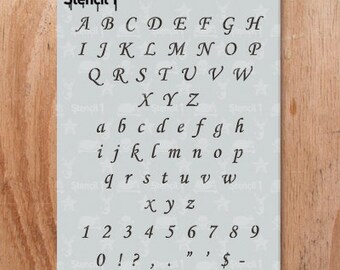 Stencil 1
A B C D E F G H
I J K L M N O P
Q R S T U V W
X Y Z
a b c d e f g h
i j k l m n o p
q r s t u v w
x y z
1 2 3 4 5 6 7 8 9
0 ! ? , . ” ’ $ -